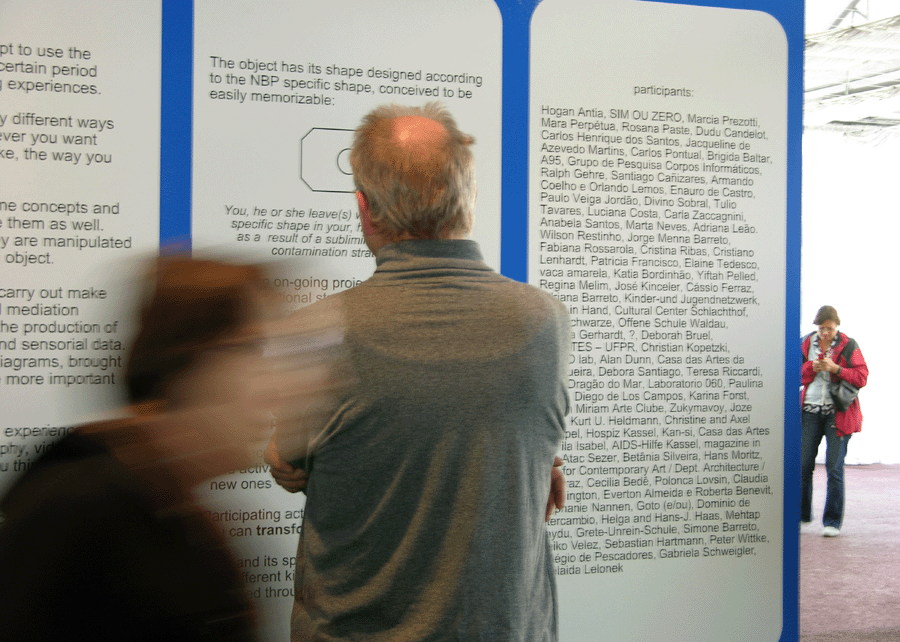 pt to use the
certain period
g experiences.
y different ways
ever you want
ke, the way you
ne concepts and
e them as well.
ey are manipulated
object.
carry out make
mediation
he production of
nd sensorial data.
iagrams, brought
more important
experienc
phy, vid
u thi
The object has its shape designed according
to the NBP specific shape, conceived to be
easily memorizable:
You, he or she leave(s) w
specific shape in your, h
as a result of a sublimi
contamination stra
on-going proje
ional st
activa
new ones
Participating act
can transfo
and its sp
ferent ki
ed throu
participants:
Hogan Antia, SIM OU ZERO, Marcia Prezotti,
Mara Perpétua, Rosana Paste, Dudu Candelot,
Carlos Henrique dos Santos, Jacqueline de
Azevedo Martins, Carlos Pontual, Brigida Baltar,
A95, Grupo de Pesquisa Corpos Informáticos,
Ralph Gehre, Santiago Cañizares, Armando
Coelho e Orlando Lemos, Enauro de Castro,
Paulo Veiga Jordão, Divino Sobral, Tulio
Tavares, Luciana Costa, Carla Zaccagnini,
Anabela Santos, Marta Neves, Adriana Leão,
Wilson Restinho, Jorge Menna Barreto,
Fabiana Rossarola, Cristina Ribas, Cristiano
Lenhardt, Patricia Francisco, Elaine Tedesco,
vaca amarela, Katia Bordinhão, Yiftah Pelled,
Regina Melim, José Kinceler, Cássio Ferraz,
iana Barreto, Kinder-und Jugendnetzwerk,
in Hand, Cultural Center Schlachthof,
chwarze, Offene Schule Waldau,
a Gerhardt, ?, Deborah Bruel,
TES – UFPR, Christian Kopetzki,
D lab, Alan Dunn, Casa das Artes da
ueira, Debora Santiago, Teresa Riccardi,
Dragão do Mar, Laboratorio 060, Paulina
Diego de Los Campos, Karina Forst,
Miriam Arte Clube, Zukymavoy, Joze
Kurt U. Heldmann, Christine and Axel
pel, Hospiz Kassel, Kan-si, Casa das Artes
ila Isabel, AIDS-Hilfe Kassel, magazine in
Atac Sezer, Betânia Silveira, Hans Moritz,
for Contemporary Art / Dept. Architecture /
raz, Cecilia Bedê, Polonca Lovsin, Claudia
ington, Everton Almeida e Roberta Benevit,
phanie Nannen, Goto (e/ou), Dominio de
tercambio, Helga and Hans-J. Haas, Mehtap
aydu, Grete-Unrein-Schule, Simone Barreto,
eiko Velez, Sebastian Hartmann, Peter Wittke,
égio de Pescadores, Gabriela Schweigler,
elaida Lelonek